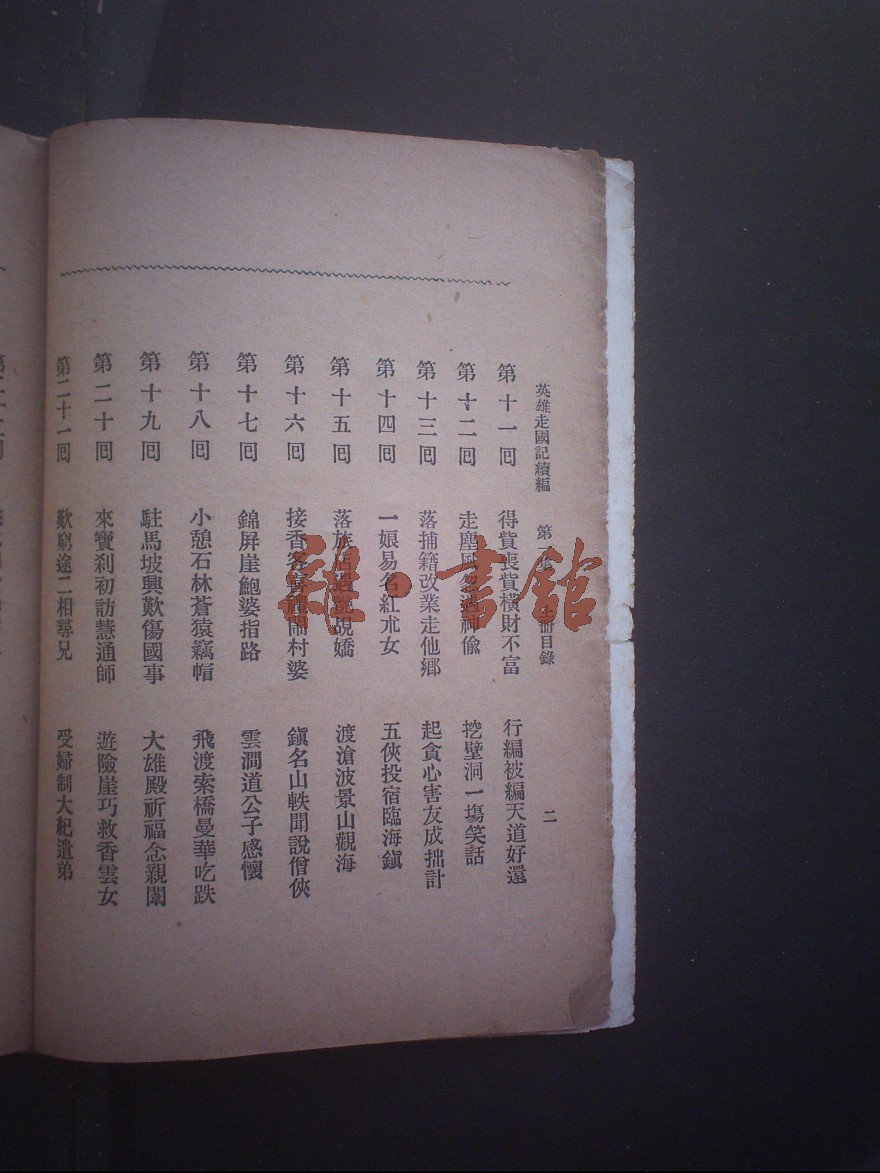 英雄走國記續編 第 册目錄 二
第十一回 得貲喪貲橫財不富 行編被編天道好還
第十二回 走塵 忽遇神偸 挖壁洞一塲笑話
第十三回 落捕籍改業走他鄉 起貪心害友成拙計
第十四回 一娘易名紅朮女 五俠投宿臨海鎭
第十五回 落旅店 覘嬌 渡滄波景山觀海
第十六回 接香客 鬧村婆 鎭名山軼聞說僧俠
第十七回 錦屛崖鮑婆指路 雲澗道公子感懷
第十八回 小憩石林蒼猿竊帽 飛渡索橋曼華吃跌
第十九回 駐馬坡興歎傷國事 大雄殿祈福念親闈
第二十回 來寶刹初訪慧通師 遊險崖巧救香雲女
第二十一回 歎窮途二相尋兄 受婦制大紀遣弟
雜·書館